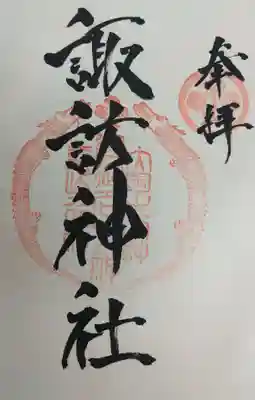 奉拝
諏訪神社